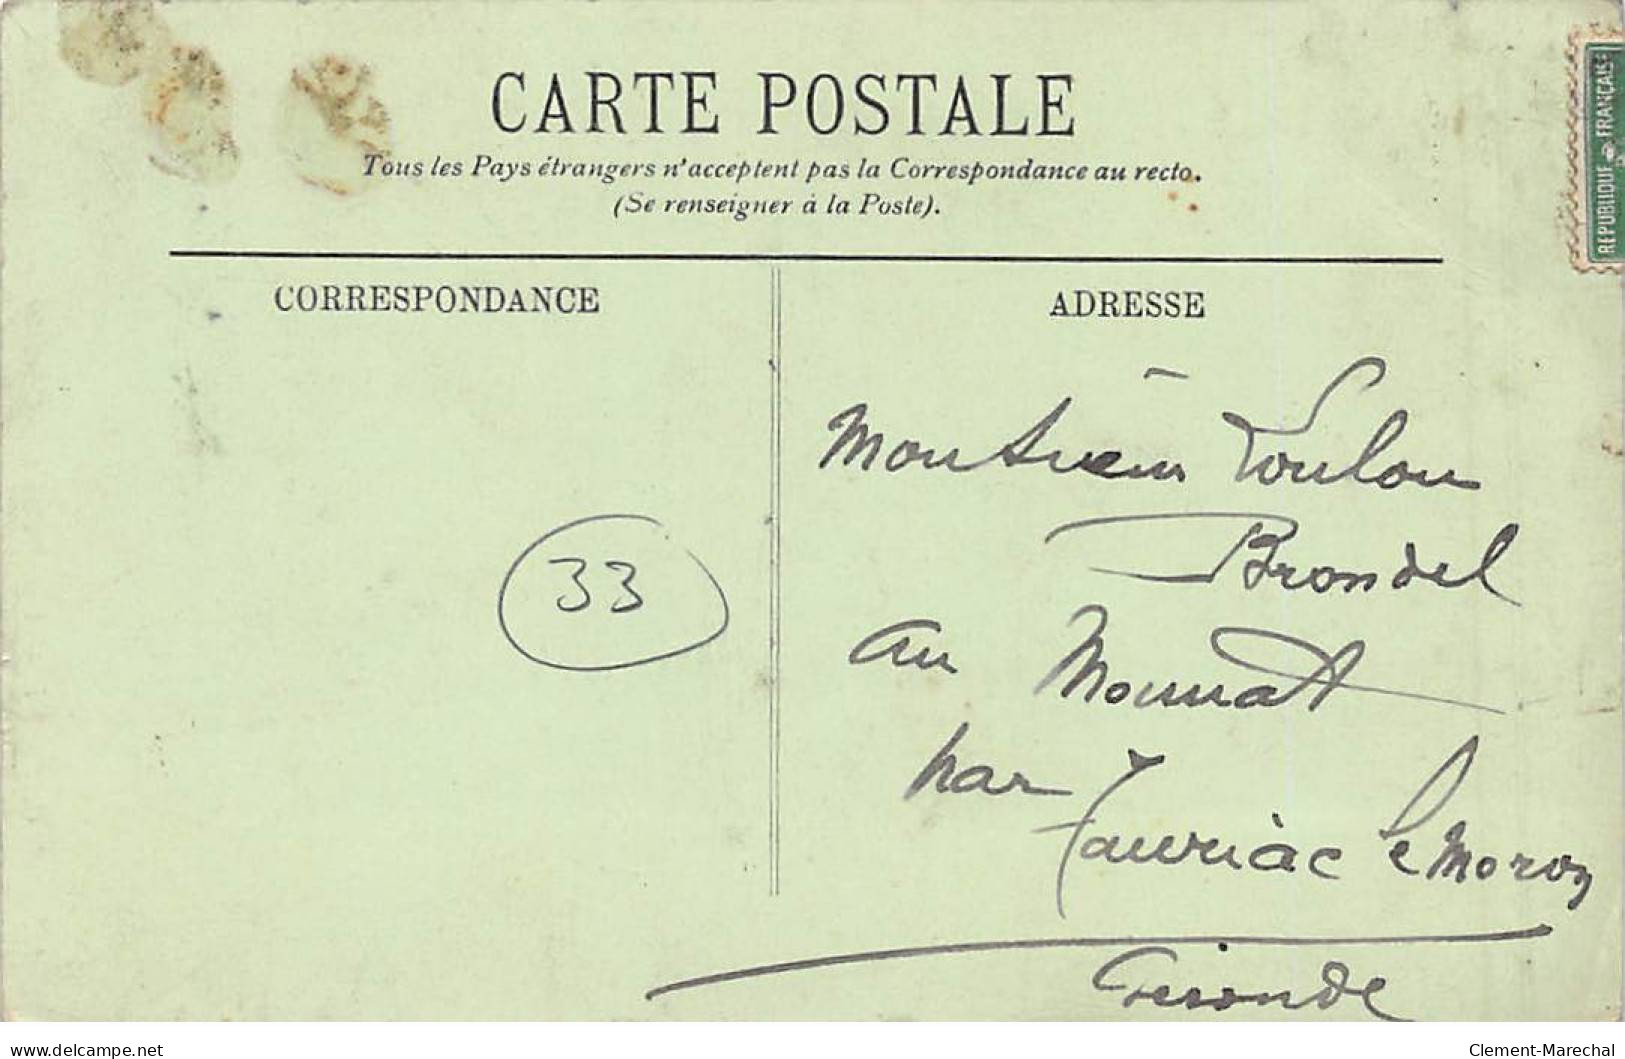 CARTE POSTALE
Tous les Pays étrangers n'acceptent pas la Correspondance au recto.
(Se renseigner à la Poste).
REPUBLIQUE FRANÇAISE
CORRESPONDANCE
ADRESSE
Monsieur Loulou
Brondel
33
au Mounat
par Tauriac le Moron
Gironde
delcampe.net
Clement-Marechal